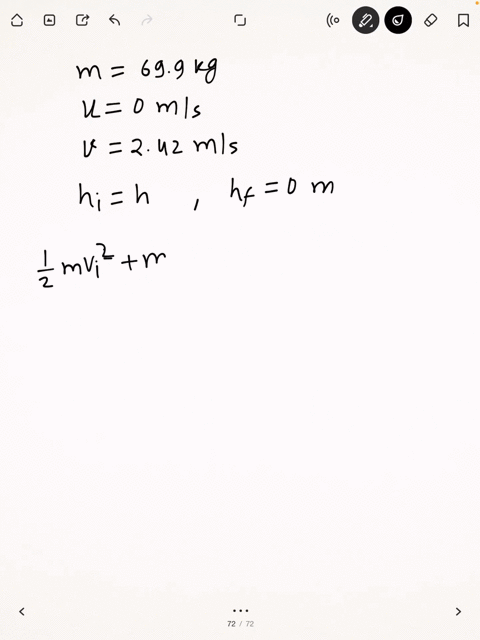 m = 69.9 kg
u = 0 m/s
v = 2.42 m/s
hi = h , hf = 0 m
1/2 mvi² + m
72 / 72